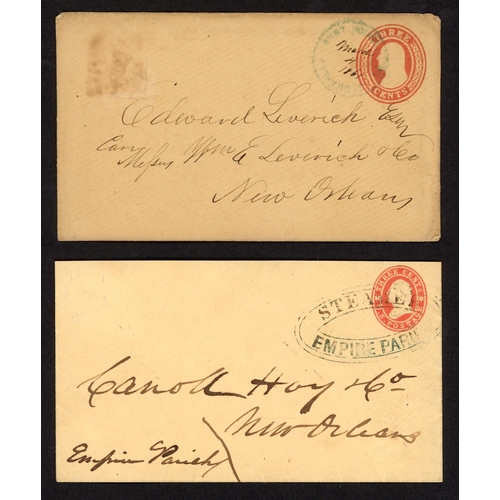 THREE
CENTS
Edward Leverich Esqr
Care
Messrs Wm E Leverich & Co
New Orleans
THREE CENTS
U.S. POSTAGE
STEAMER
EMPIRE PARI
Carroll Hoy & Co
New Orleans
Empire Parish